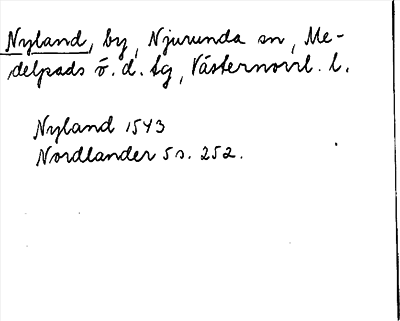 Nyland, by, Njurunda sn, Me-
delpads ö. d. tg, Västernorrl. l.
Nyland 1543
Nordlander 5 s. 252.